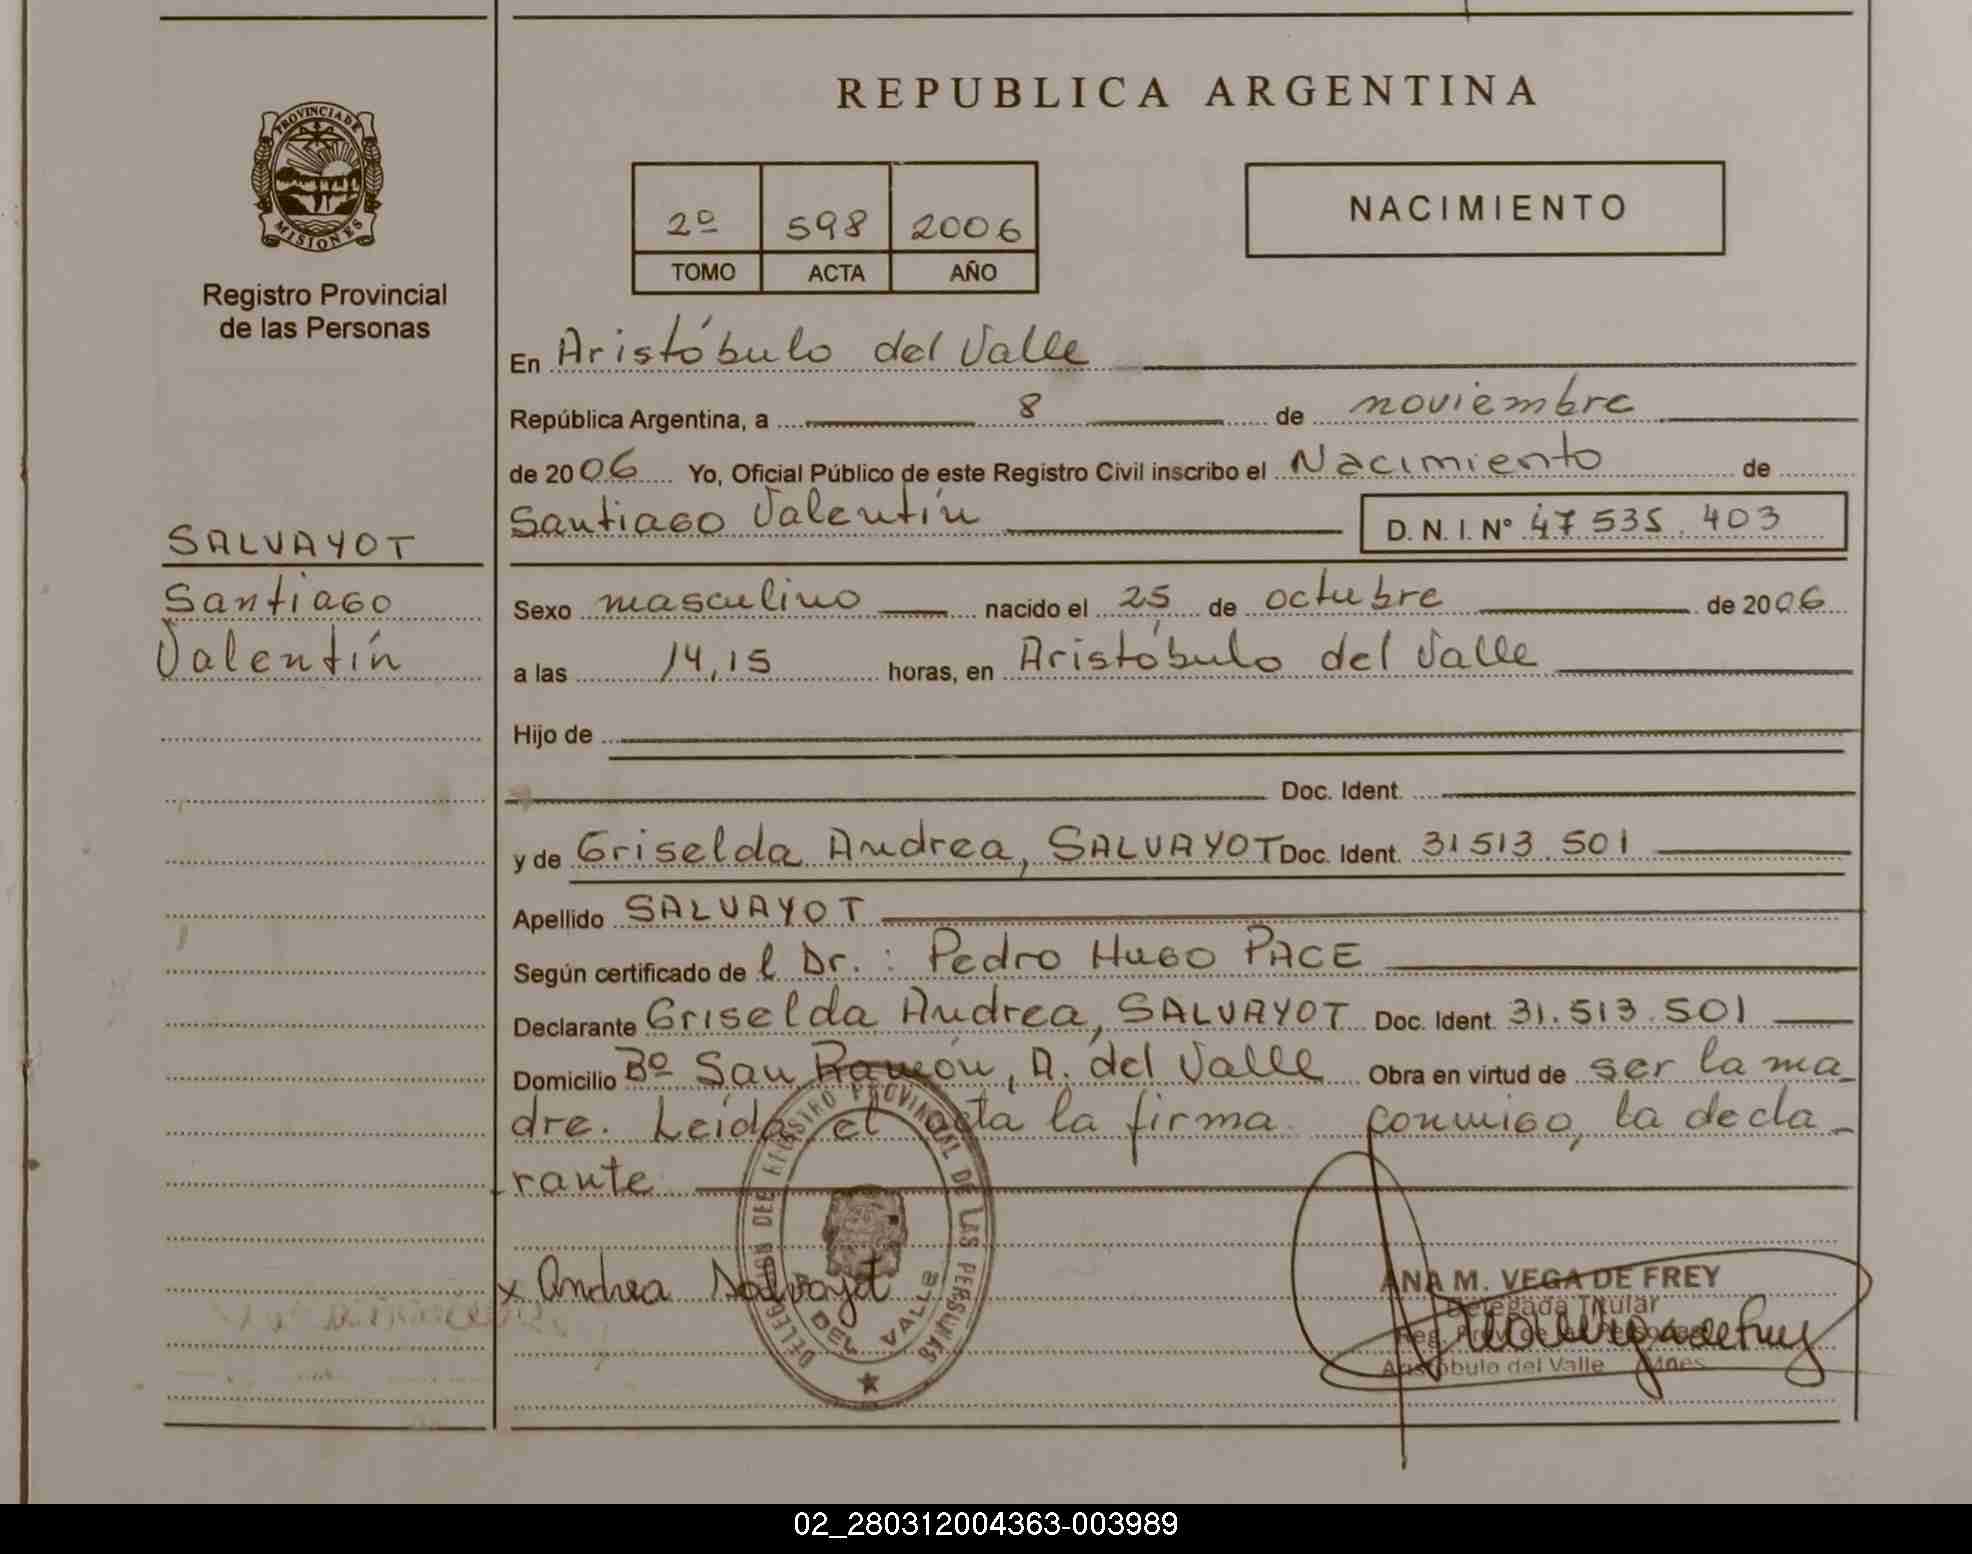 REPUBLICA ARGENTINA
PROVINCIA DE MISIONES
Registro Provincial
de las Personas
2º 598 2006
TOMO ACTA AÑO
NACIMIENTO
En Aristóbulo del Valle
República Argentina, a 8 de noviembre
de 2006 Yo, Oficial Público de este Registro Civil inscribo el Nacimiento de
Santiago Valentín D. N. I. Nº 47 535.403
SALVAYOT
Santiago
Valentín
Sexo masculino nacido el 25 de octubre de 2006
a las 14,15 horas, en Aristóbulo del Valle
Hijo de
Doc. Ident.
y de Griselda Andrea, SALVAYOT Doc. Ident. 31 513.501
Apellido SALVAYOT
Según certificado de l Dr.: Pedro Hugo PACE
Declarante Griselda Andrea, SALVAYOT Doc. Ident. 31.513.501
Domicilio Bº San Ramón, A. del Valle Obra en virtud de ser la ma_
dre. Leída el acta la firma conmigo, la decla_
rante
x Andrea Salvayot
DELEGACION DEL REGISTRO PROVINCIAL DE LAS PERSONAS
A DEL VALLE
ANA M. VEGA DE FREY
Delegada Titular
Reg. Prov. de las Personas
Aristóbulo del Valle Mnes
02_280312004363-003989